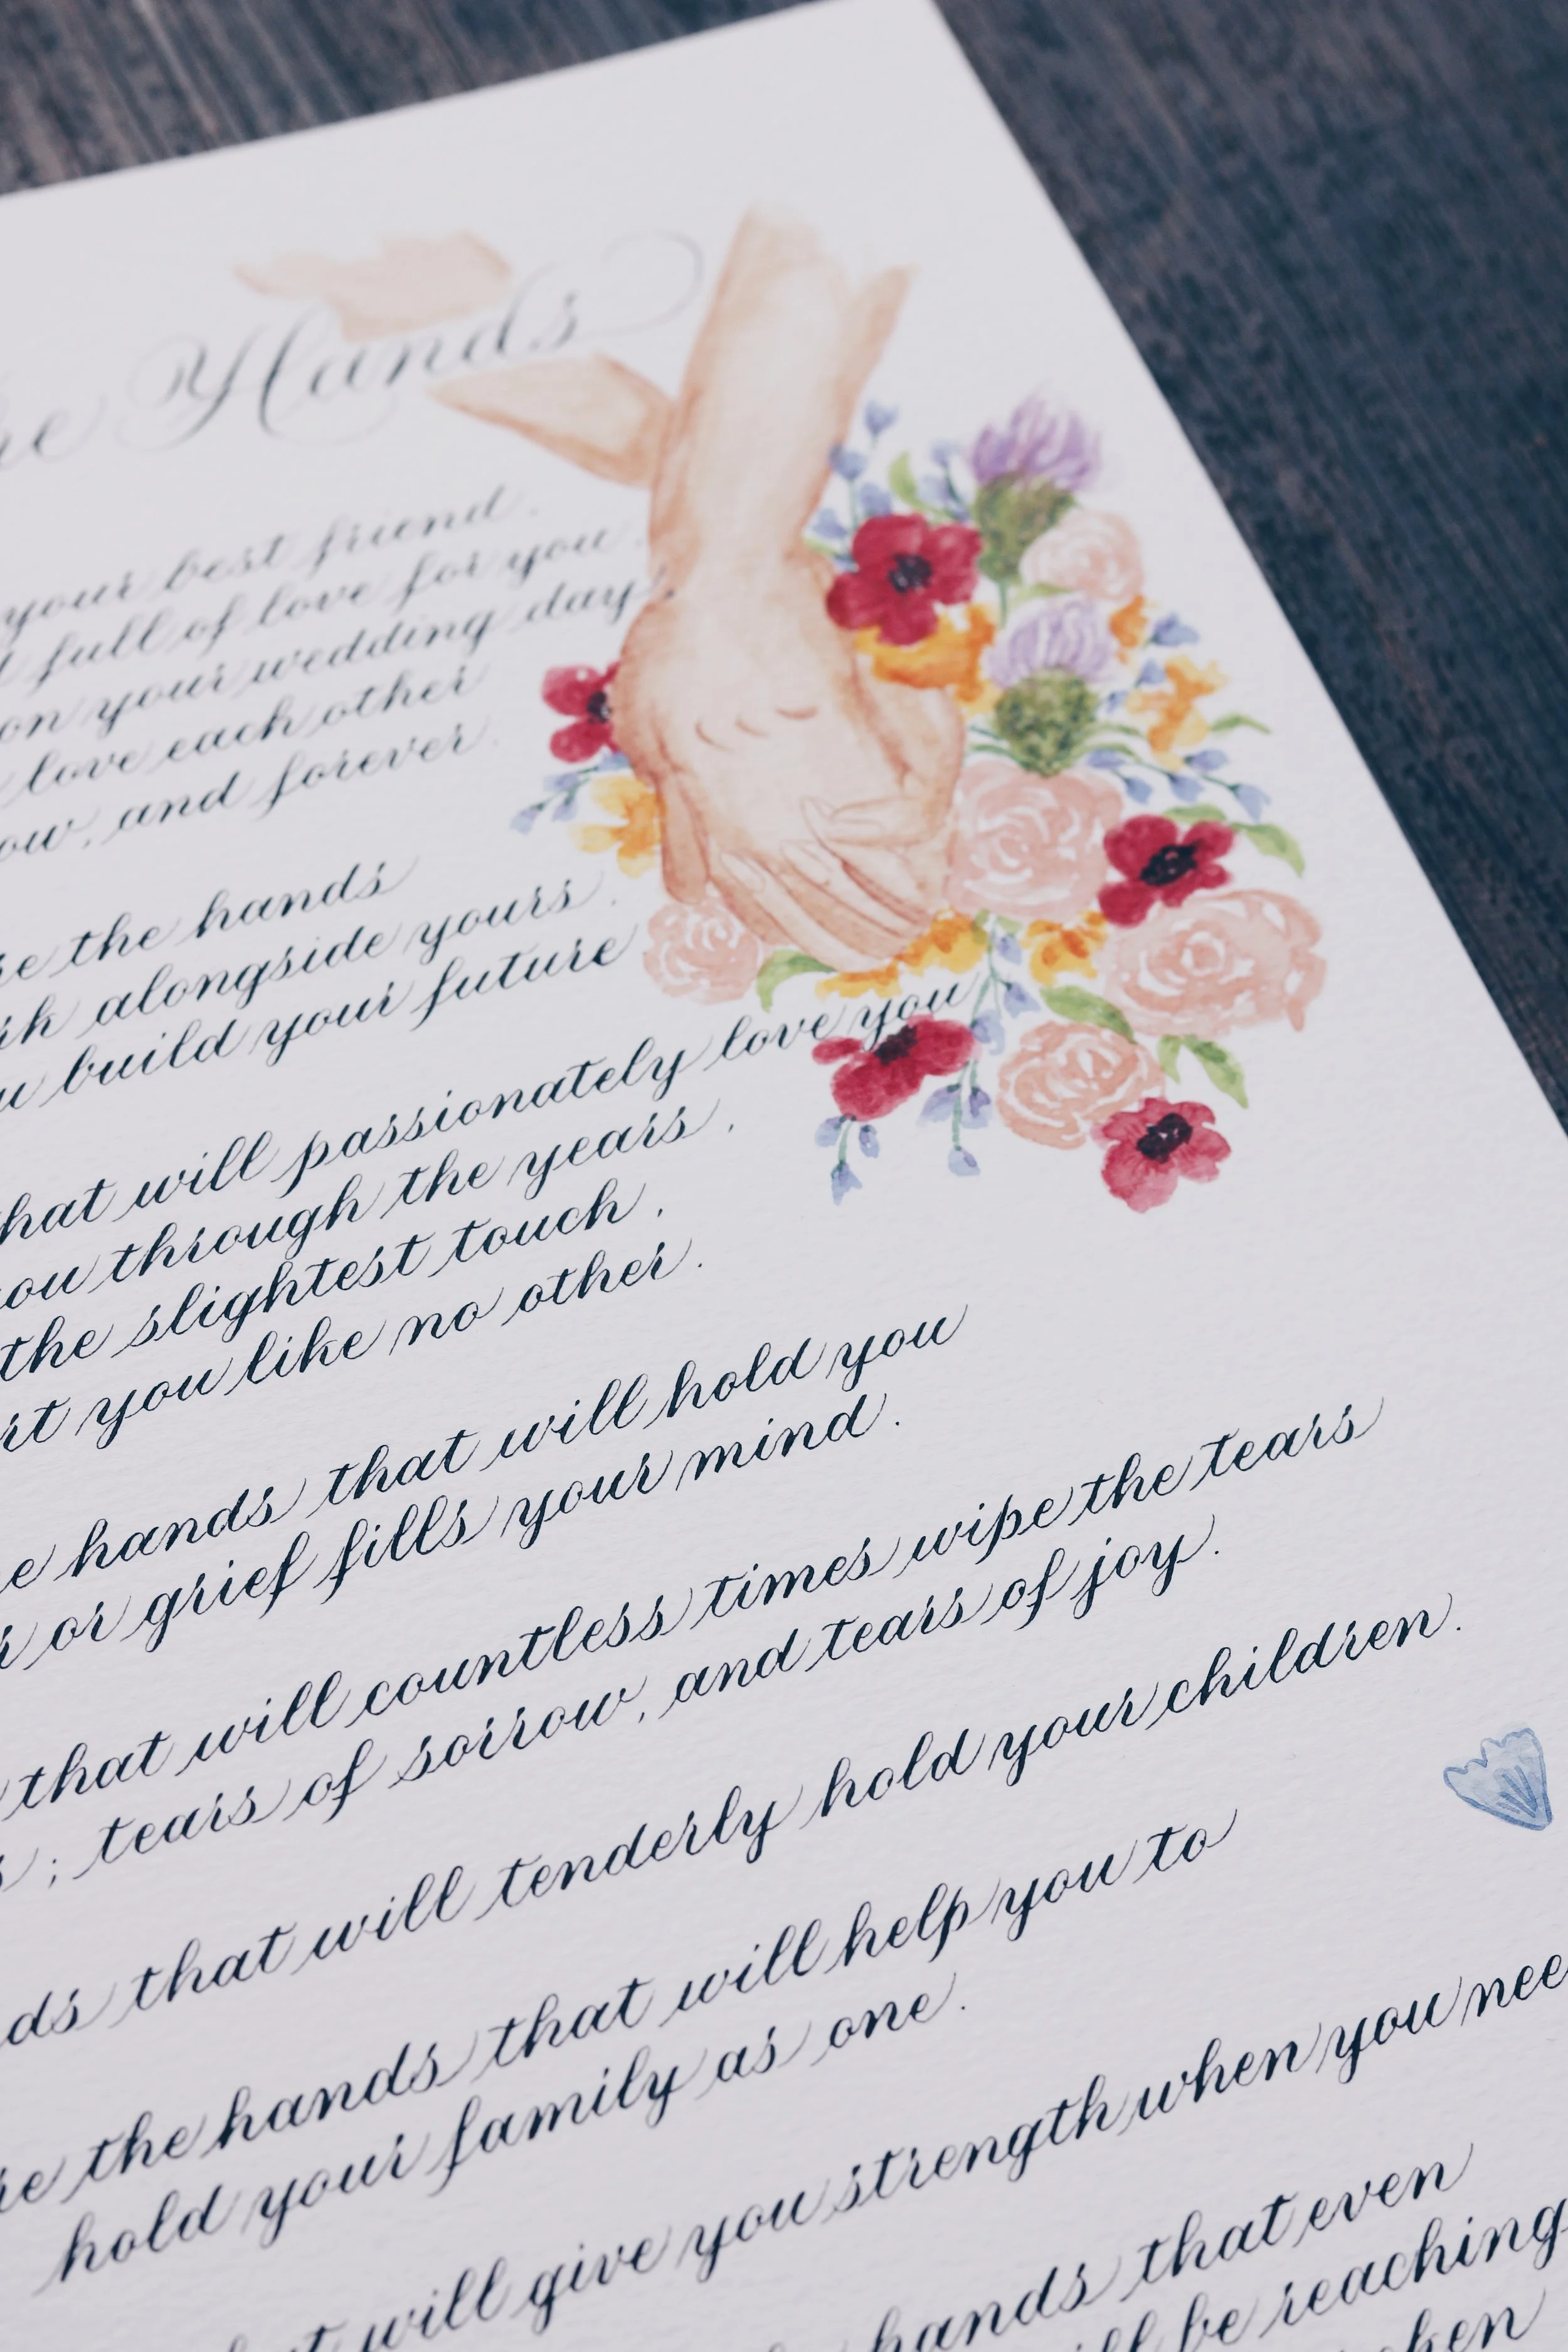 Hands
your best friend.
full of love for you.
on your wedding day,
love each other
and forever.
the hands
alongside yours.
build your future
that will passionately love you
you through the years.
the slightest touch,
you like no other.
hands that will hold you
or grief fills your mind.
that will countless times wipe the tears
; tears of sorrow, and tears of joy.
that will tenderly hold your children.
the hands that will help you to
hold your family as one.
will give you strength when you
hands that even
be reaching